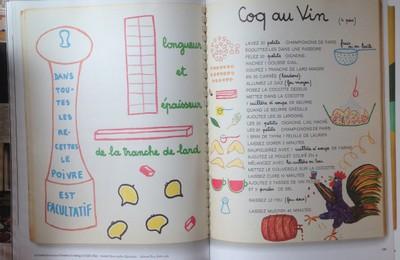 DANS
TOU-
TES
LES
RE-
CETTES
LE
POIVRE
EST
FACULTATIF
longueur
et
épaisseur
de la tranche de lard
Coq au Vin
(4 pers)
LAVEZ 20 petits CHAMPIGNONS DE PARIS
frais ou boîte
EGOUTTEZ-LES DANS UNE PASSOIRE
PELEZ 20 petits OIGNONS
HACHEZ 1 GOUSSE D'AIL
COUPEZ 1 TRANCHE DE LARD MAIGRE
EN 20 CARRÉS (lardons)
ALLUMEZ LE GAZ (feu moyen)
POSEZ LA COCOTTE DESSUS
METTEZ DANS LA COCOTTE
1 cuillère à soupe DE BEURRE
QUAND LE BEURRE GRÉSILLE
AJOUTEZ LES 20 LARDONS
LES 20 petits OIGNONS, L'AIL HACHÉ
LES 20 petits CHAMPIGNONS DE PARIS
1 BRIN DE THYM 1 FEUILLE DE LAURIER
LAISSEZ DORER 2 MINUTES
SAUPOUDREZ AVEC 1 cuillère à soupe DE FARINE
AJOUTEZ LE POULET COUPÉ EN 4
MÉLANGEZ AVEC la cuillère en bois
METTEZ LE COUVERCLE SUR LA COCOTTE
LAISSEZ CUIRE 10 MINUTES
AJOUTEZ 2 TASSES DE VIN
ET 2 pincées DE SEL
BAISSEZ LE FEU (feu doux)
LAISSEZ MIJOTER 45 MINUTES